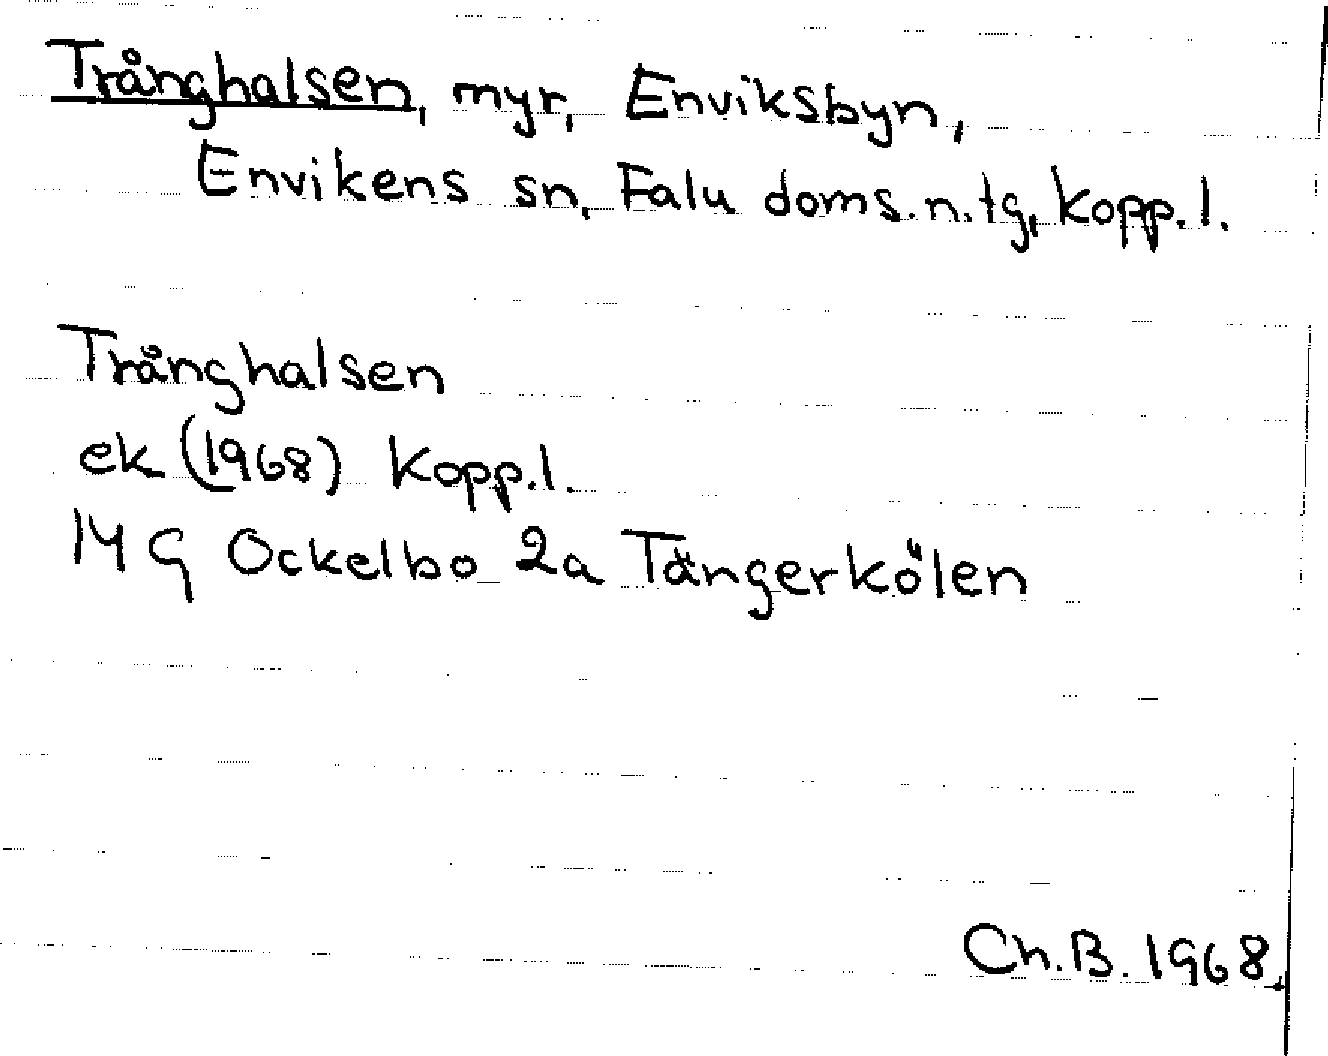 Trånghalsen, myr, Enviksbyn,
Envikens sn, Falu doms.n.tg, Kopp.l.
Trånghalsen
ek (1968) Kopp.l.
14 G Ockelbo 2a Tängerkölen
Ch.B. 1968.